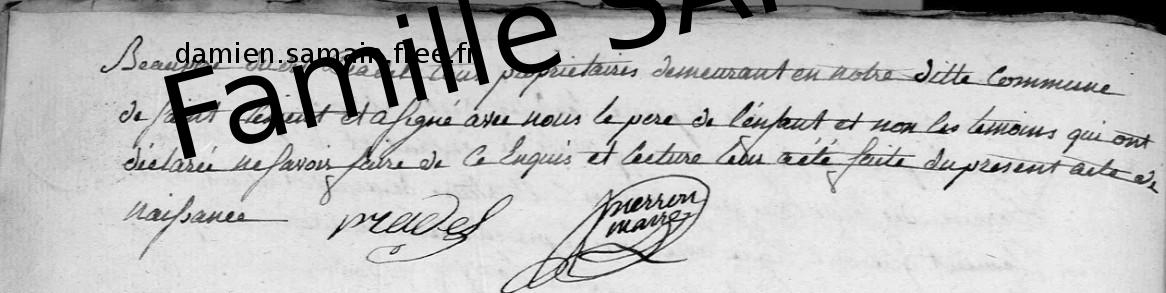 Famille SA
damien.samain.free.fr
propriétaires demeurant en notre ditte Commune
de saint et a signé avec nous le pere de l'enfant et non les temoins qui ont
déclarée ne savoir faire de ce Enquis et lecture leur a été faite du present acte de
naissance pradel pierron maire